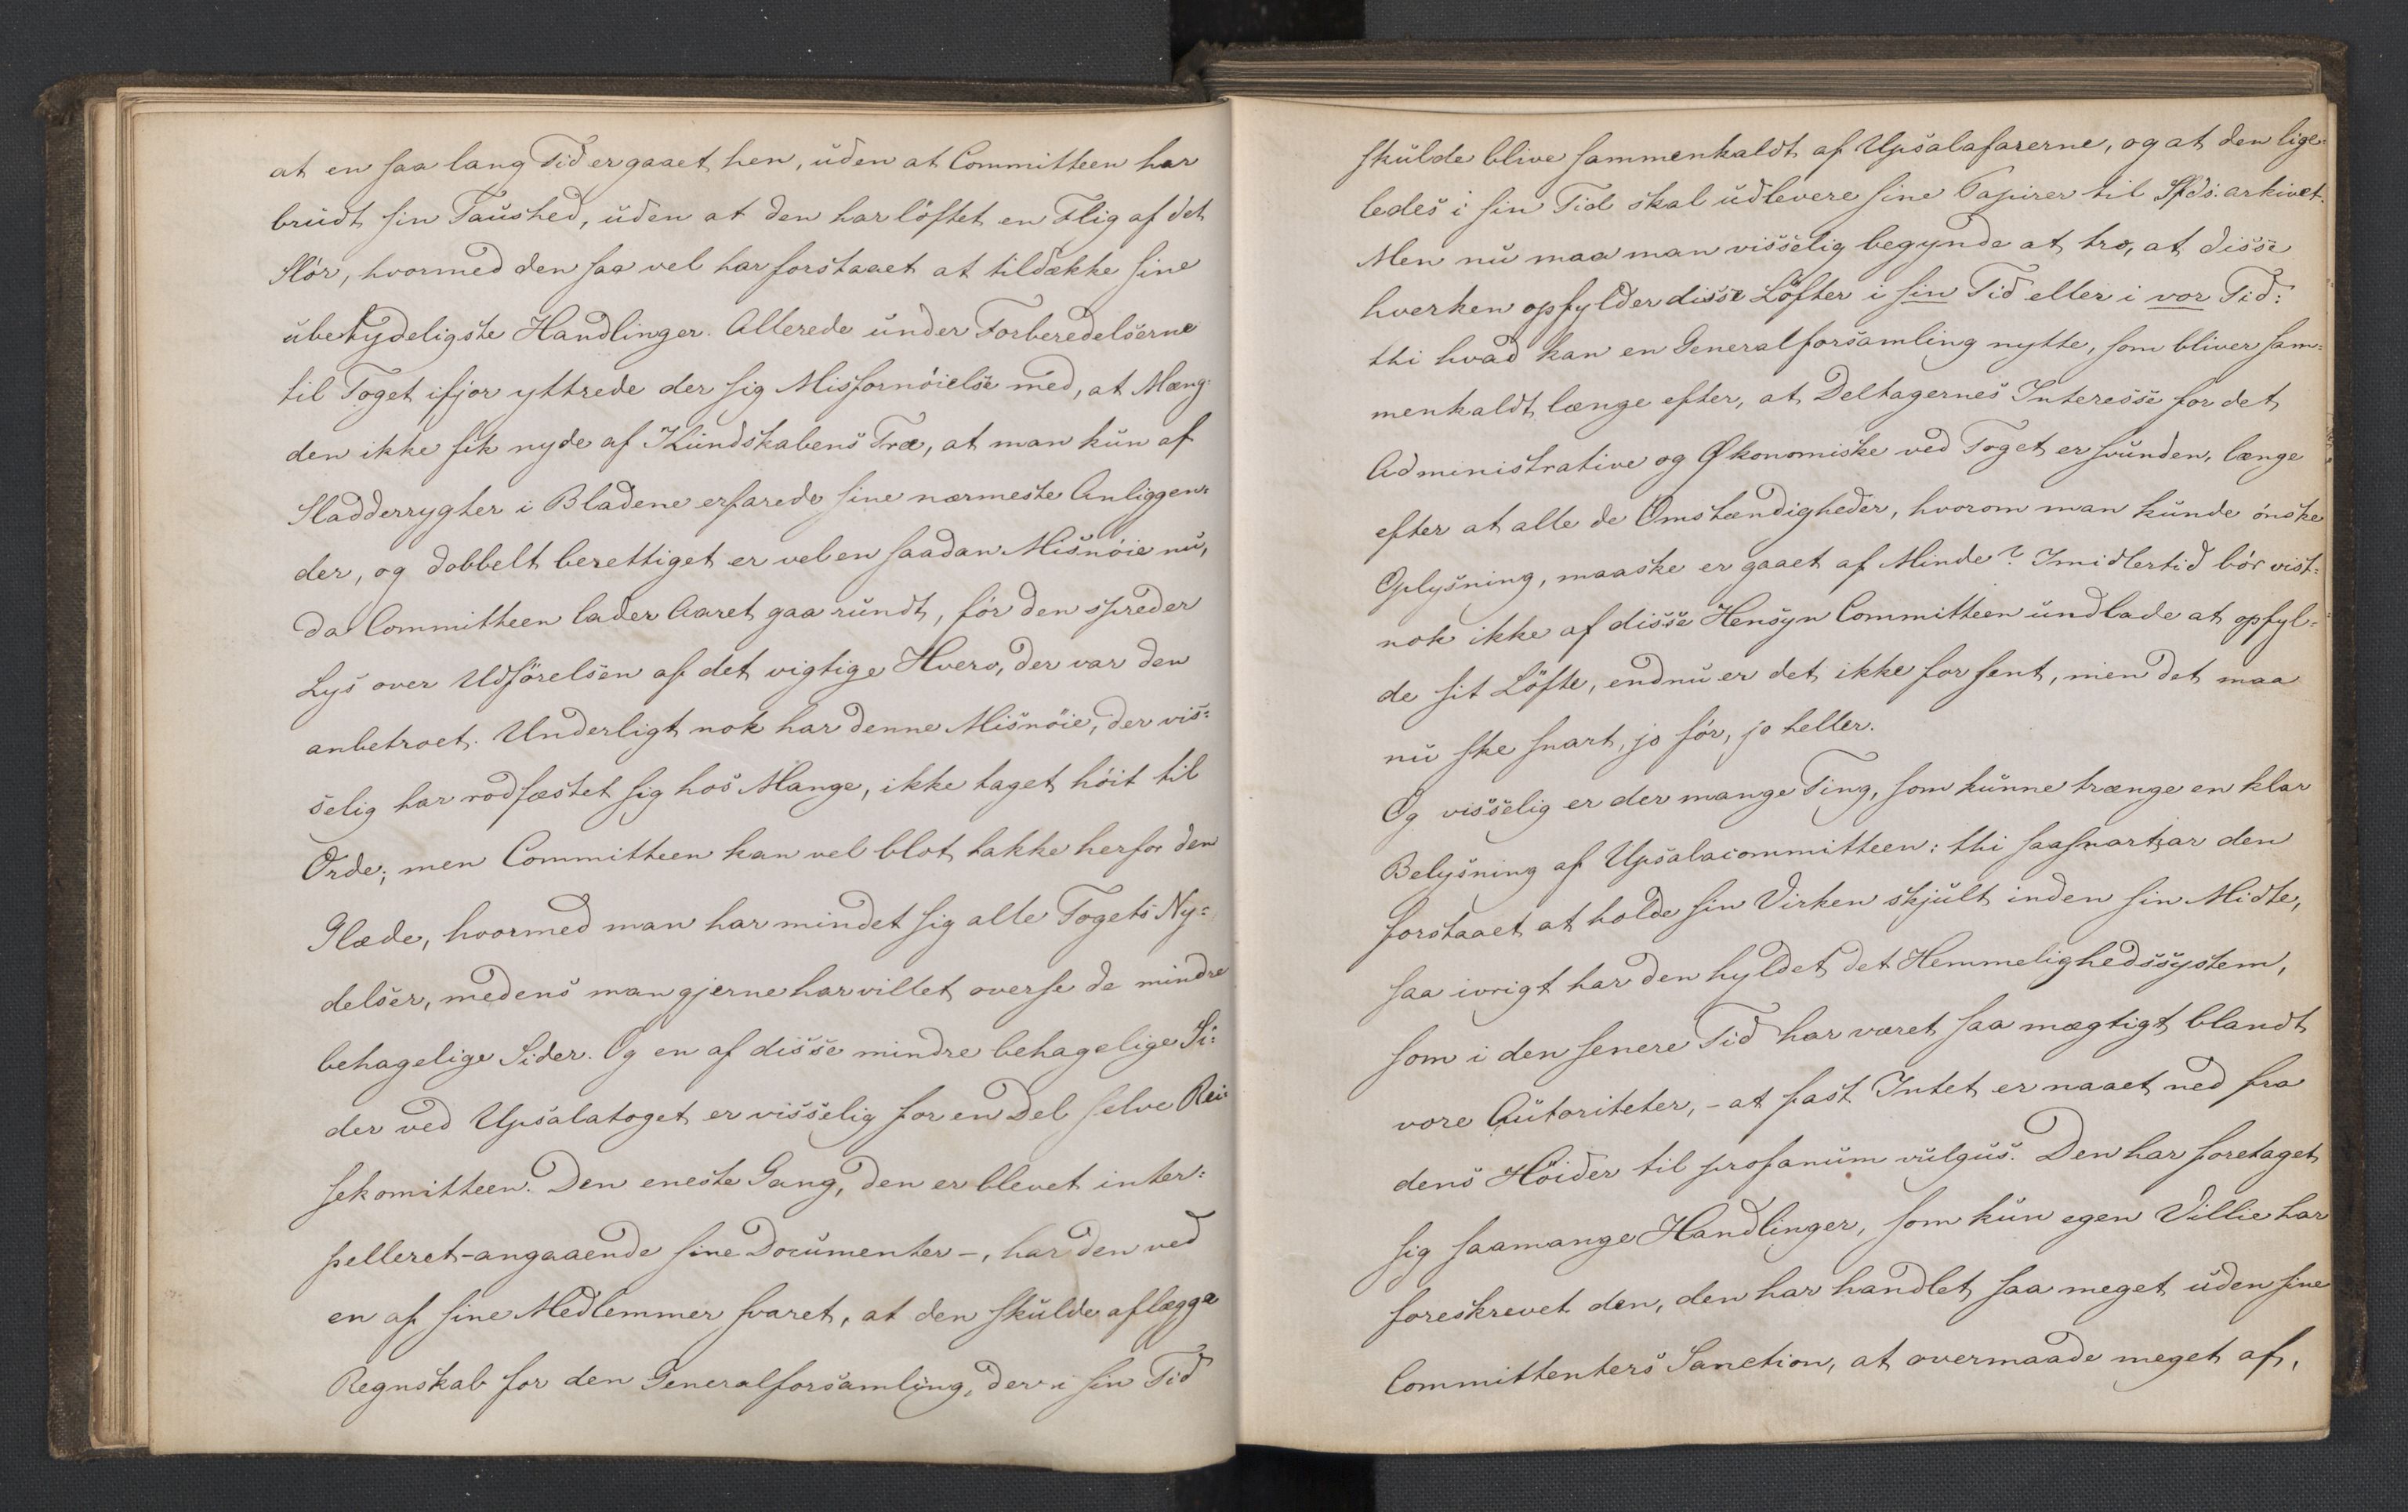 at en saa lang Tid er gaaet hen, uden at Committeen har
brudt sin Taushed, uden at den har løftet en Flig af det
Slør, hvormed den saa vel har forstaaet at tildække sine
ubetydeligste Handlinger. Allerede under Forberedelserne
til Toget ifjor yttrede der sig Misfornøielse med, at Mæng-
den ikke fik nyde af Kundskabens Træ, at man kun af
Sladderrygter i Bladene erfarede sine nærmeste Anliggen-
der, og dobbelt berettiget er vel en saadan Misnøie nu,
da Committeen lader Aaret gaa rundt, før den spreder
Lys over Udførelsen af det vigtige Hverv, der var den
anbetroet. Underligt nok har denne Misnøie, der vis-
selig har rodfæstet sig hos Mange, ikke taget høit til
Orde; men Committeen kan vel blot takke herfor den
Glæde, hvormed man har mindet sig alle Togets Ny-
delser, medens man gjerne har villet overse de mindre
behagelige Sider. Og en af disse mindre behagelige Si-
der ved Upsalatoget er visselig for en Del selve Rei-
sekomitteen. Den eneste Gang, den er blevet inter-
pelleret - angaaende sine Documenter -, har den ved
en af sine Medlemmer svaret, at den skulde aflægge
Regnskab for den Generalforsamling, der i sin Tid
skulde blive sammenkaldt af Upsalafarerne, og at den lige-
ledes i sin Tid skal udlevere sine Papirer til Sfds. arkivet.
Men nu maa man visselig begynde at tro, at disse
hverken opfylder disse Løfter i sin Tid eller i vor Tid:
thi hvad kan en Generalforsamling nytte, som bliver sam-
menkaldt længe efter, at Deltagernes Interesse for det
Administrative og Økonomiske ved Toget er svunden, længe
efter at alle de Omstændigheder, hvorom man kunde ønske
Oplysning, maaske er gaaet af Minde? Imidlertid bør vist-
nok ikke af disse Hensyn Committeen undlade at opfyl-
de sit Løfte, endnu er det ikke for sent, men det maa
nu ske snart, jo før, jo heller.
Og visselig er der mange Ting, som kunne trænge en klar
Belysning af Upsalacommitteen: thi saa snart har den
forstaaet at holde sin Virken skjult inden sin Midte,
saa ivrigt har den hyldet det Hemmelighedssystem,
som i den senere Tid har været saa mægtigt blandt
vore Autoriteter, - at fast Intet er naaet ned fra
dens Høider til profanum vulgus. Den har foretaget
sig saamange Handlinger, som kun egen Villie har
foreskrevet den, den har handlet saa meget uden sine
Committenters Sanction, at overmaade meget af,